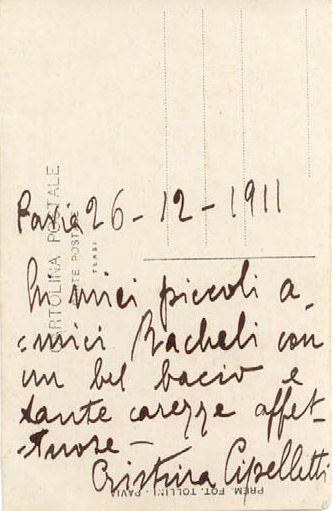 CARTOLINA POSTALE
CARTE POSTALE
Pavia 26-12-1911
Ai miei piccoli a=
=mici Racheli con
un bel bacio e
tante carezze affet=
=tuose-
Cristina Cipelletti
PREM. FOT. TOLLINI - PAVIA